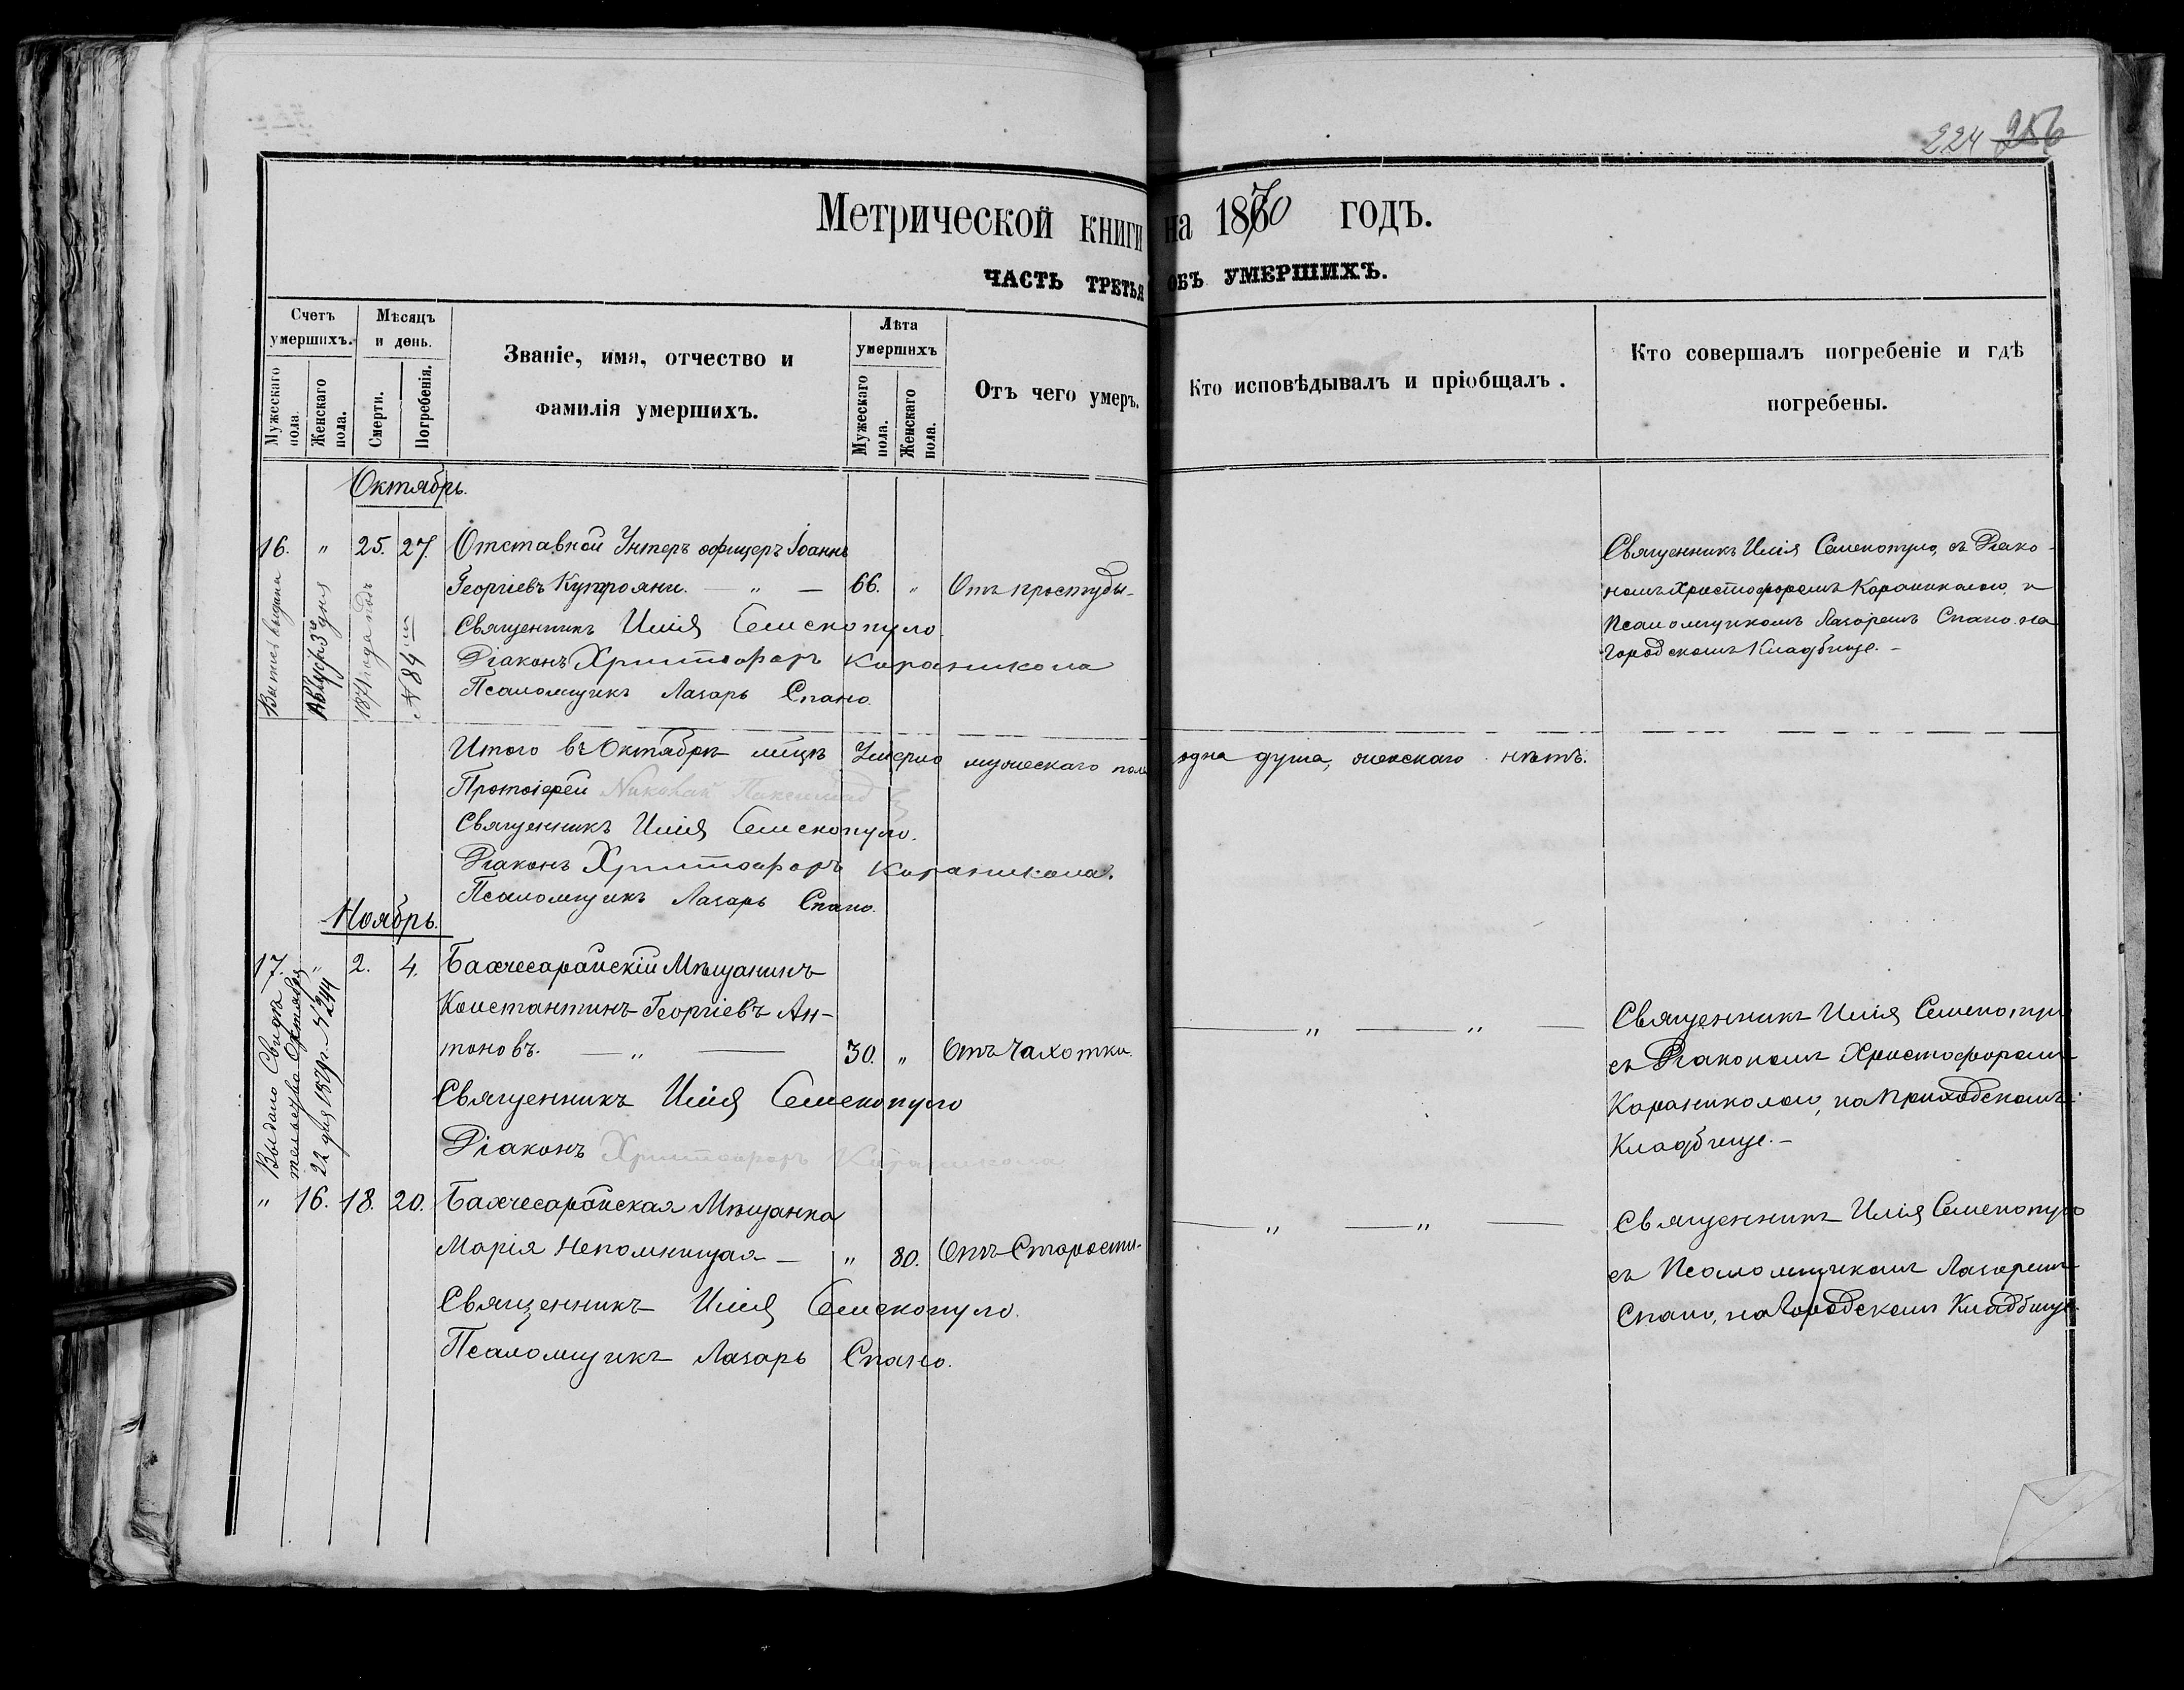 224 256
Метрической книги на 1870 годъ.
ЧАСТЬ ТРЕТЬЯ ОБЪ УМЕРШИХЪ.
Счетъ умершихъ.
Мужескаго пола.
Женскаго пола.
Мѣсяцъ и день.
Смерти.
Погребенія.
Званіе, имя, отчество и
фамилія умершихъ.
Лѣта умершихъ
Мужескаго пола.
Женскаго пола.
Отъ чего умеръ.
Кто исповѣдывалъ и пріобщалъ.
Кто совершалъ погребеніе и гдѣ
погребены.
Октябрь.
16. " 25. 27. Отставной Унтеръ офицеръ Іоаннъ
Георгіевъ Купрояни. — " — 66. " Отъ простуды-
Священникъ Илія Семенопуло
Діаконъ Христофоръ Караникола
Псаломщикъ Лазарь Спано.
Священникъ Илія Семенопуло, съ Діако-
номъ Христофоромъ Караниколою, и
Псаломщикомъ Лазоремъ Спано на
Городскомъ Кладбище.-
выдана
Августа 3го дня
1871 года подъ
№ 84мъ
Итого въ Октябрѣ мцѣ Умерло мужескаго пола одна душа, женскаго нѣтъ.
Протоіерей Николай
Священникъ Илія Семенопуло.
Діаконъ Христофоръ Караникола.
Псаломщикъ Лазарь Спано.
Ноябрь.
17. " 2. 4. Бахчесарайскій Мѣщанинъ
Константинъ Георгіевъ Ан-
тоновъ. — " — 30. " Отъ Чахотки.
Священникъ Илія Семенопуло
Діаконъ Христофоръ Караникола
— " — " —
Священникъ Илія Семенопуло
съ Діакономъ Христофоромъ
Караниколою, на Приходскомъ
Кладбище.-
Выдано Свидѣ
тельство Октября
22 дня 187 г. № 244
" 16. 18. 20. Бахчесарайская Мѣщанка
Марія Непомнящая — " 80. Отъ Старости.
Священникъ Илія Семенопуло.
Псаломщикъ Лазарь Спано.
— " — " —
Священникъ Илія Семенопуло
съ Псаломщикомъ Лазоремъ
Спано, на Городскомъ Кладбище.